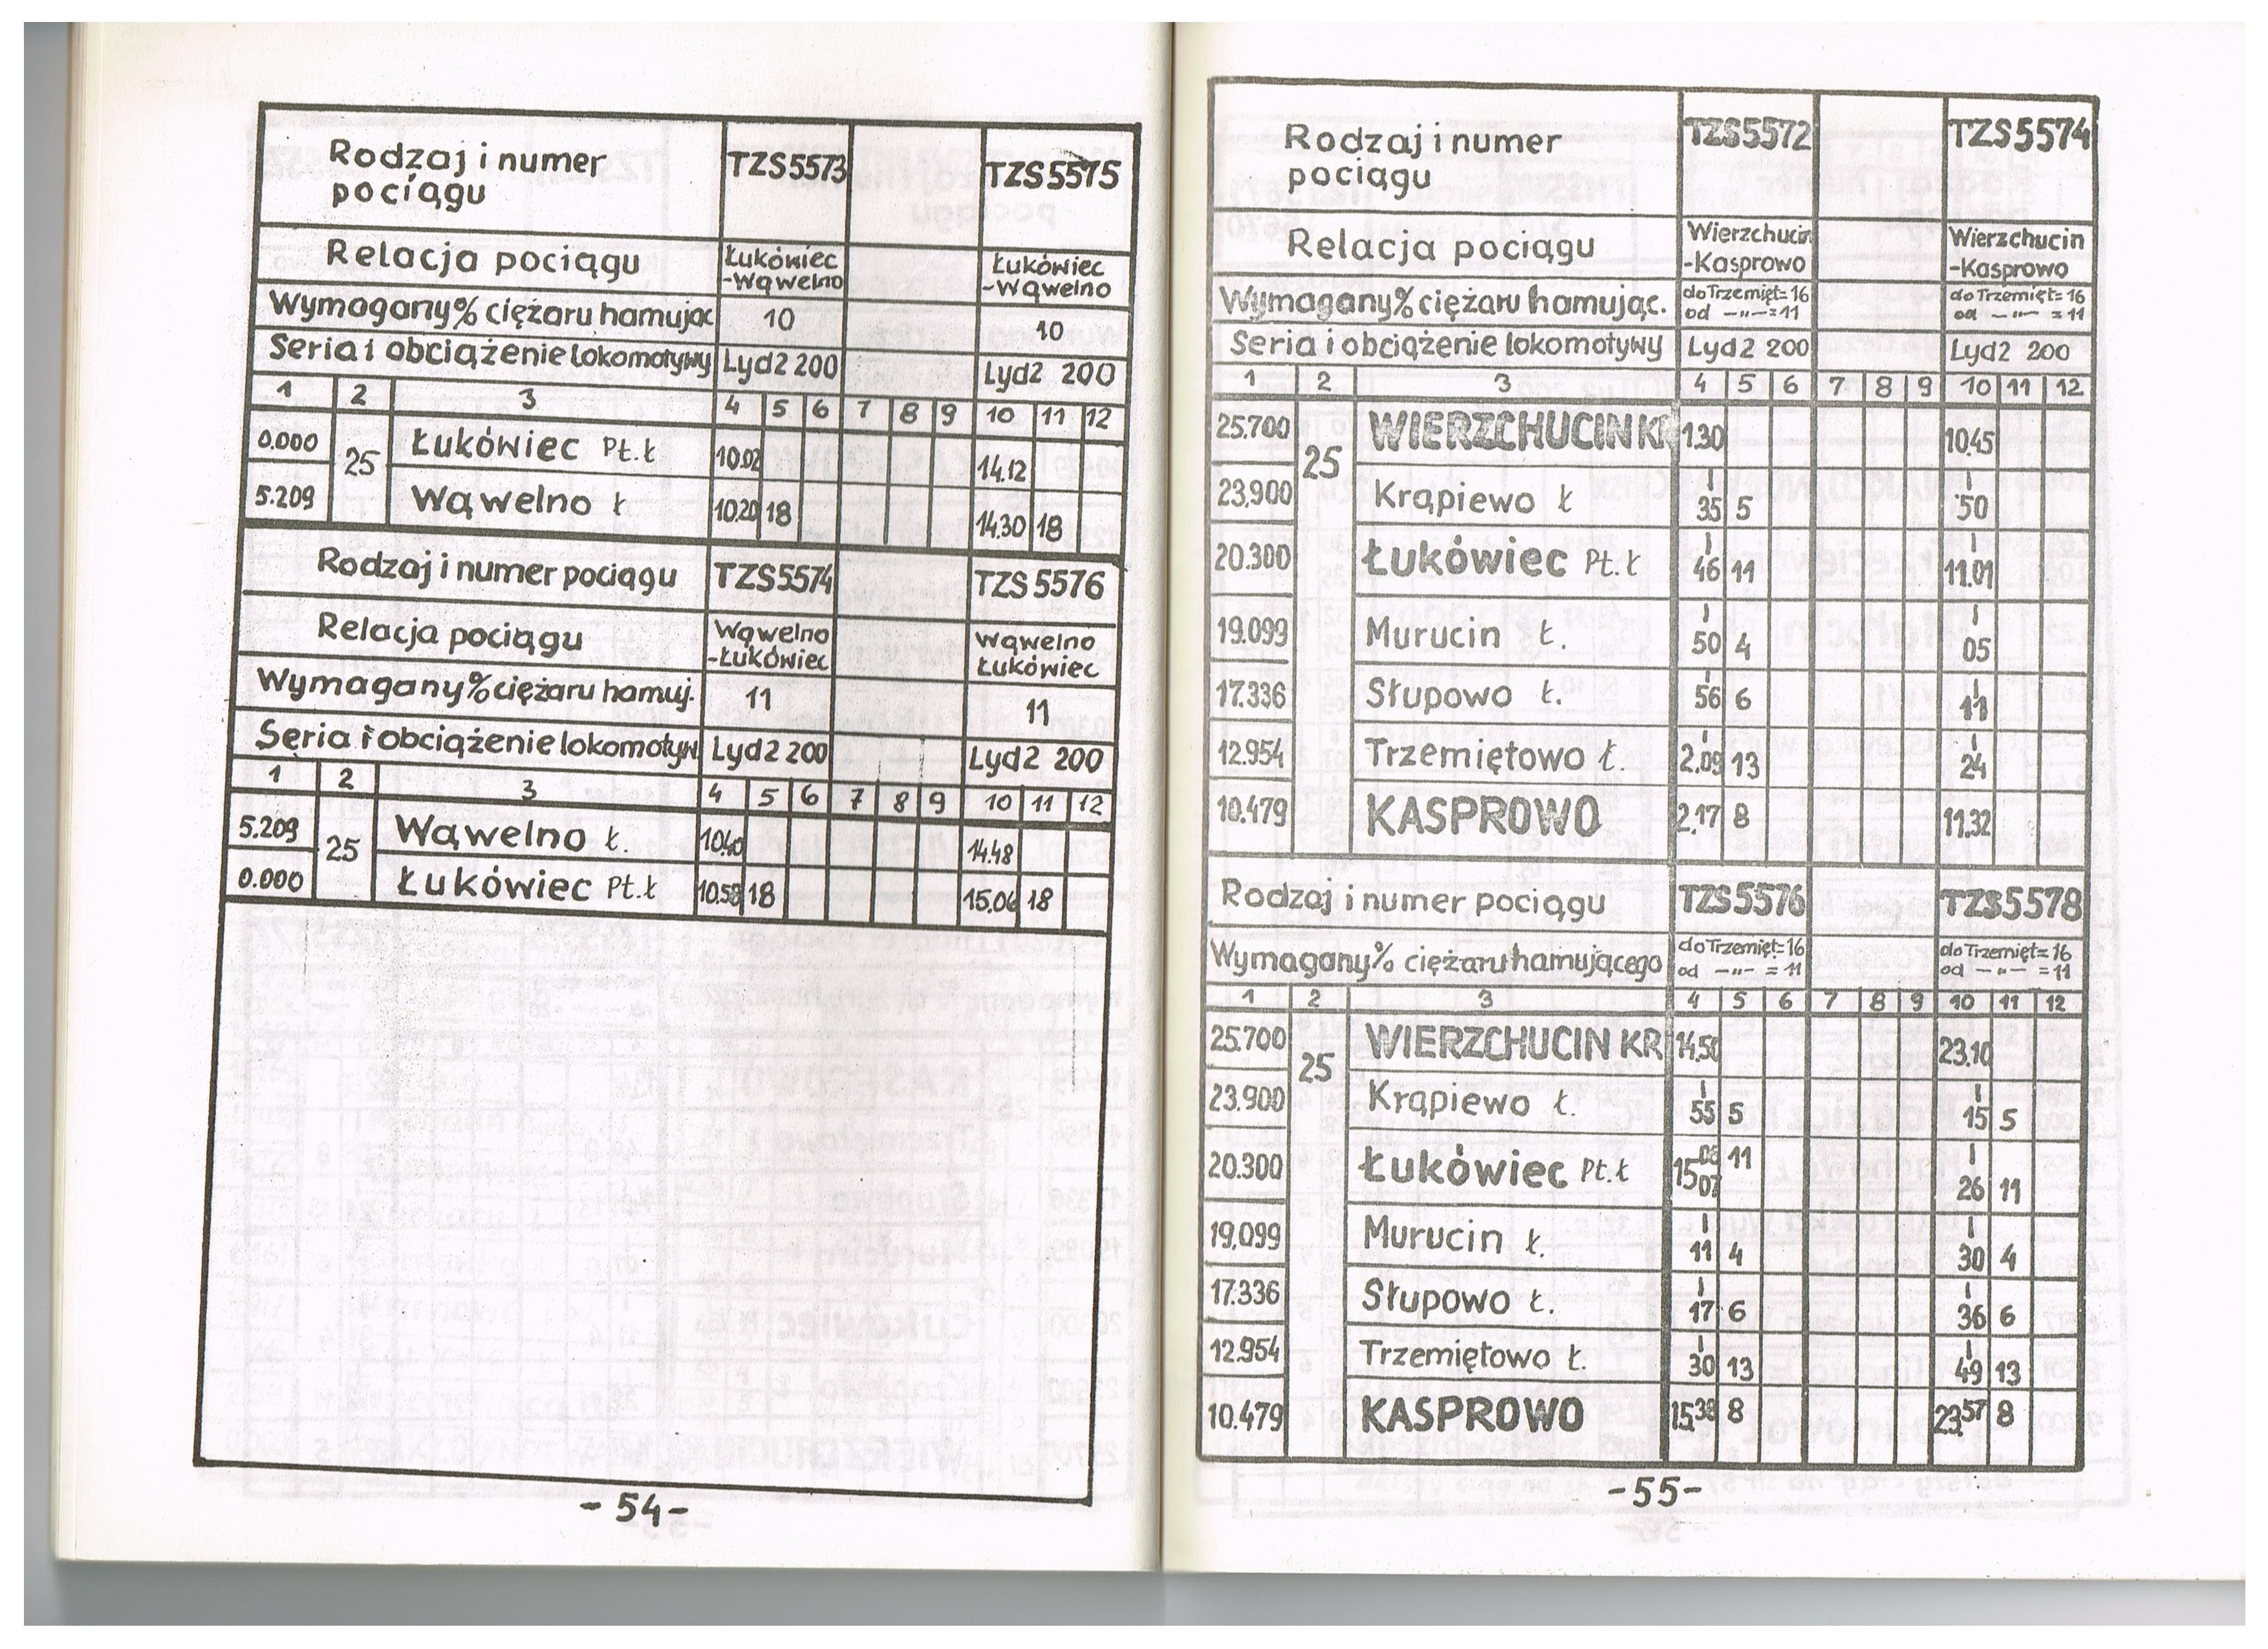 Rodzaj i numer pociągu TZS5573 TZS5575
Relacja pociągu Łukówiec -Wąwelno Łukówiec -Wąwelno
Wymagany % ciężaru hamując 10 10
Seria i obciążenie lokomotywy Lyd2 200 Lyd2 200
1 2 3 4 5 6 7 8 9 10 11 12
0.000 25 Łukówiec Pt.ł 10.02 14.12
5.209 Wąwelno ł 10.20 18 14.30 18
Rodzaj i numer pociągu TZS5574 TZS 5576
Relacja pociągu Wąwelno -Łukówiec Wąwelno Łukówiec
Wymagany % ciężaru hamuj. 11 11
Seria i obciążenie lokomotyw Lyd2 200 Lyd2 200
1 2 3 4 5 6 7 8 9 10 11 12
5.209 25 Wąwelno ł. 10.40 14.48
0.000 Łukówiec Pt.ł 10.58 18 15.06 18
- 54 -
Rodzaj i numer pociągu TZS5572 TZS5574
Relacja pociągu Wierzchucin -Kasprowo Wierzchucin -Kasprowo
Wymagany % ciężaru hamując. do Trzemięt=16 od -"- =11 do Trzemięt=16 od -"- =11
Seria i obciążenie lokomotywy Lyd2 200 Lyd2 200
1 2 3 4 5 6 7 8 9 10 11 12
25.700 25 WIERZCHUCIN KR 1.30 10.45
23.900 Krąpiewo ł 35 5 50
20.300 Łukówiec Pt.ł 46 11 11.01
19.099 Murucin ł. 50 4 05
17.336 Słupowo ł. 56 6 11
12.954 Trzemiętowo ł. 2.09 13 24
10.479 KASPROWO 2.17 8 11.32
Rodzaj i numer pociągu TZS5576 TZS5578
Wymagany % ciężaru hamującego do Trzemięt=16 od -"- =11 do Trzemięt=16 od -"- =11
1 2 3 4 5 6 7 8 9 10 11 12
25.700 25 WIERZCHUCIN KR 14.50 23.10
23.900 Krąpiewo ł. 55 5 15 5
20.300 Łukówiec Pt.ł 15 06 07 11 26 11
19.099 Murucin ł. 11 4 30 4
17.336 Słupowo ł. 17 6 36 6
12.954 Trzemiętowo ł. 30 13 49 13
10.479 KASPROWO 15.38 8 23.57 8
-55-